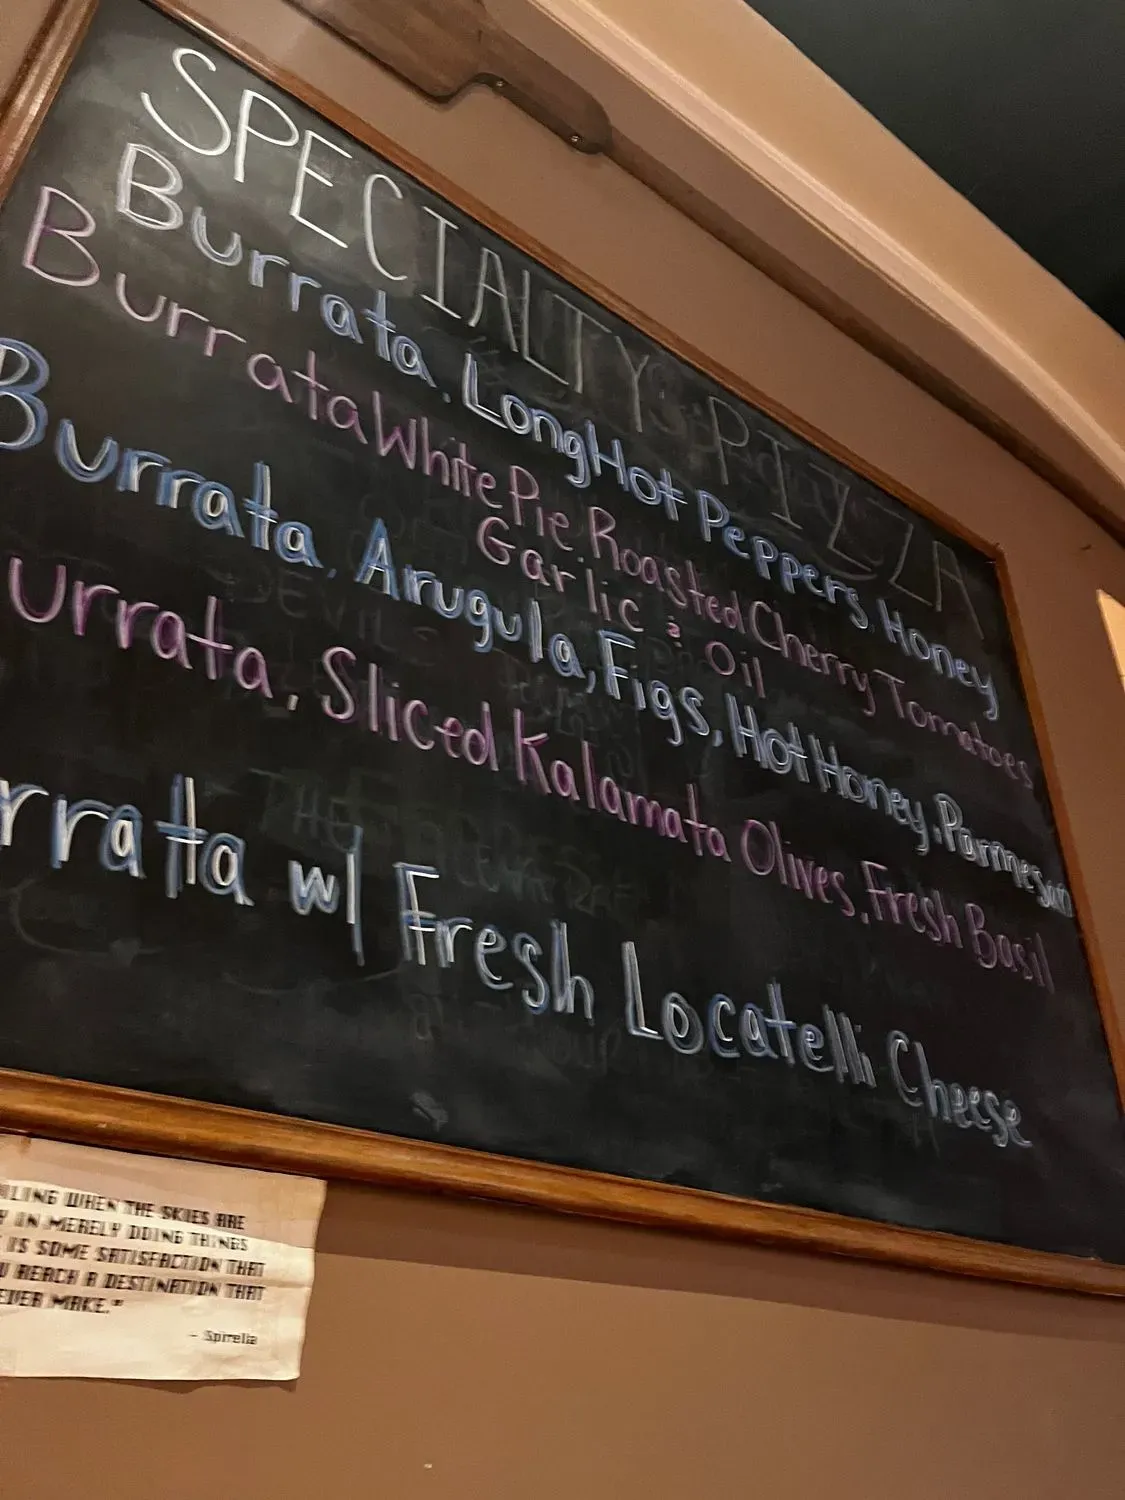 SPECIALTY PIZZA
Burrata, Long Hot Peppers, Honey
Burrata White Pie Roasted Cherry Tomatoes
Garlic & Oil
Burrata, Arugula, Figs, Hot Honey, Parmesan
urrata, Sliced Kalamata Olives, Fresh Basil
rrata w/ Fresh Locatelli Cheese
LING WHEN THE SKIES ARE
Y IN MERELY DOING THINGS
IS SOME SATISFACTION THAT
U REACH A DESTINATION THAT
EVER MAKE."
- Spirella